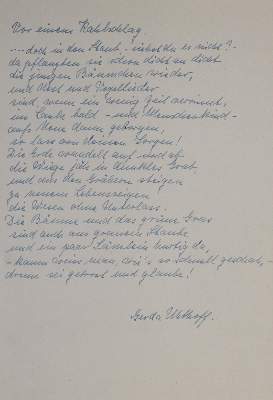 Vor einem Kahlschlag
....doch in den Staub - siehst du es nicht? -
da pflanzten sie schon dicht an dicht
die jungen Bäumchen wieder,
und Nest und Vogellieder
sind, wenn ein wenig Zeit verrinnt,
im Laube bald - und Menschenkind -
aufs Neue dann geborgen,
so lass von Deinen Sorgen!
Die Erde wandelt auf und ab
die Wiege fällt in dunkles Grab
und aus den Gräbern steigen
zu neuem Lebensreigen
die Wesen ohne Unterlass.
Die Bäume und das grüne Gras
sind auch aus grauem Staube
und ein paar Stündlein hurtig da,
- kaum weiss man, wie's so schnell geschah, -
drum sei getrost und glaube!
Gerda